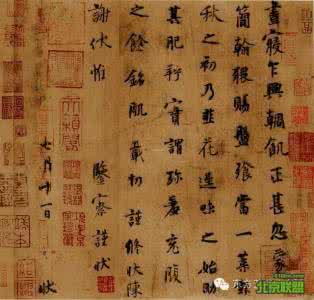 晝寢乍興輖飢正甚忽蒙
簡翰猥賜盤飧當一葉報
秋之初乃韭花逞味之始助
其肥羜實謂珍羞充腹
之餘銘肌載切謹修狀陳
謝伏惟
鑒察謹狀
七月十一日
狀
北京联盟